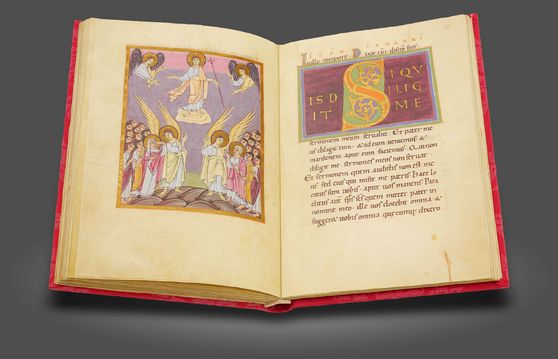 SI QV
IS D ILIG
IT ME
sermonem meum seruabit. Et pater me
us diliget eum. & ad eum ueniemus &
mansionem aput eum faciemus. Qui non
diligit me. sermones meos non seruat.
Et sermonem quem audistis non est me
us. sed eius qui misit me patris. Haec lo
cutus sum uobis. aput uos manens. Para
clitus aut sps scs quem mittet pater in
nomine meo. ille uos docebit omnia. &
sugger& uobis omnia. quecumq; dixero